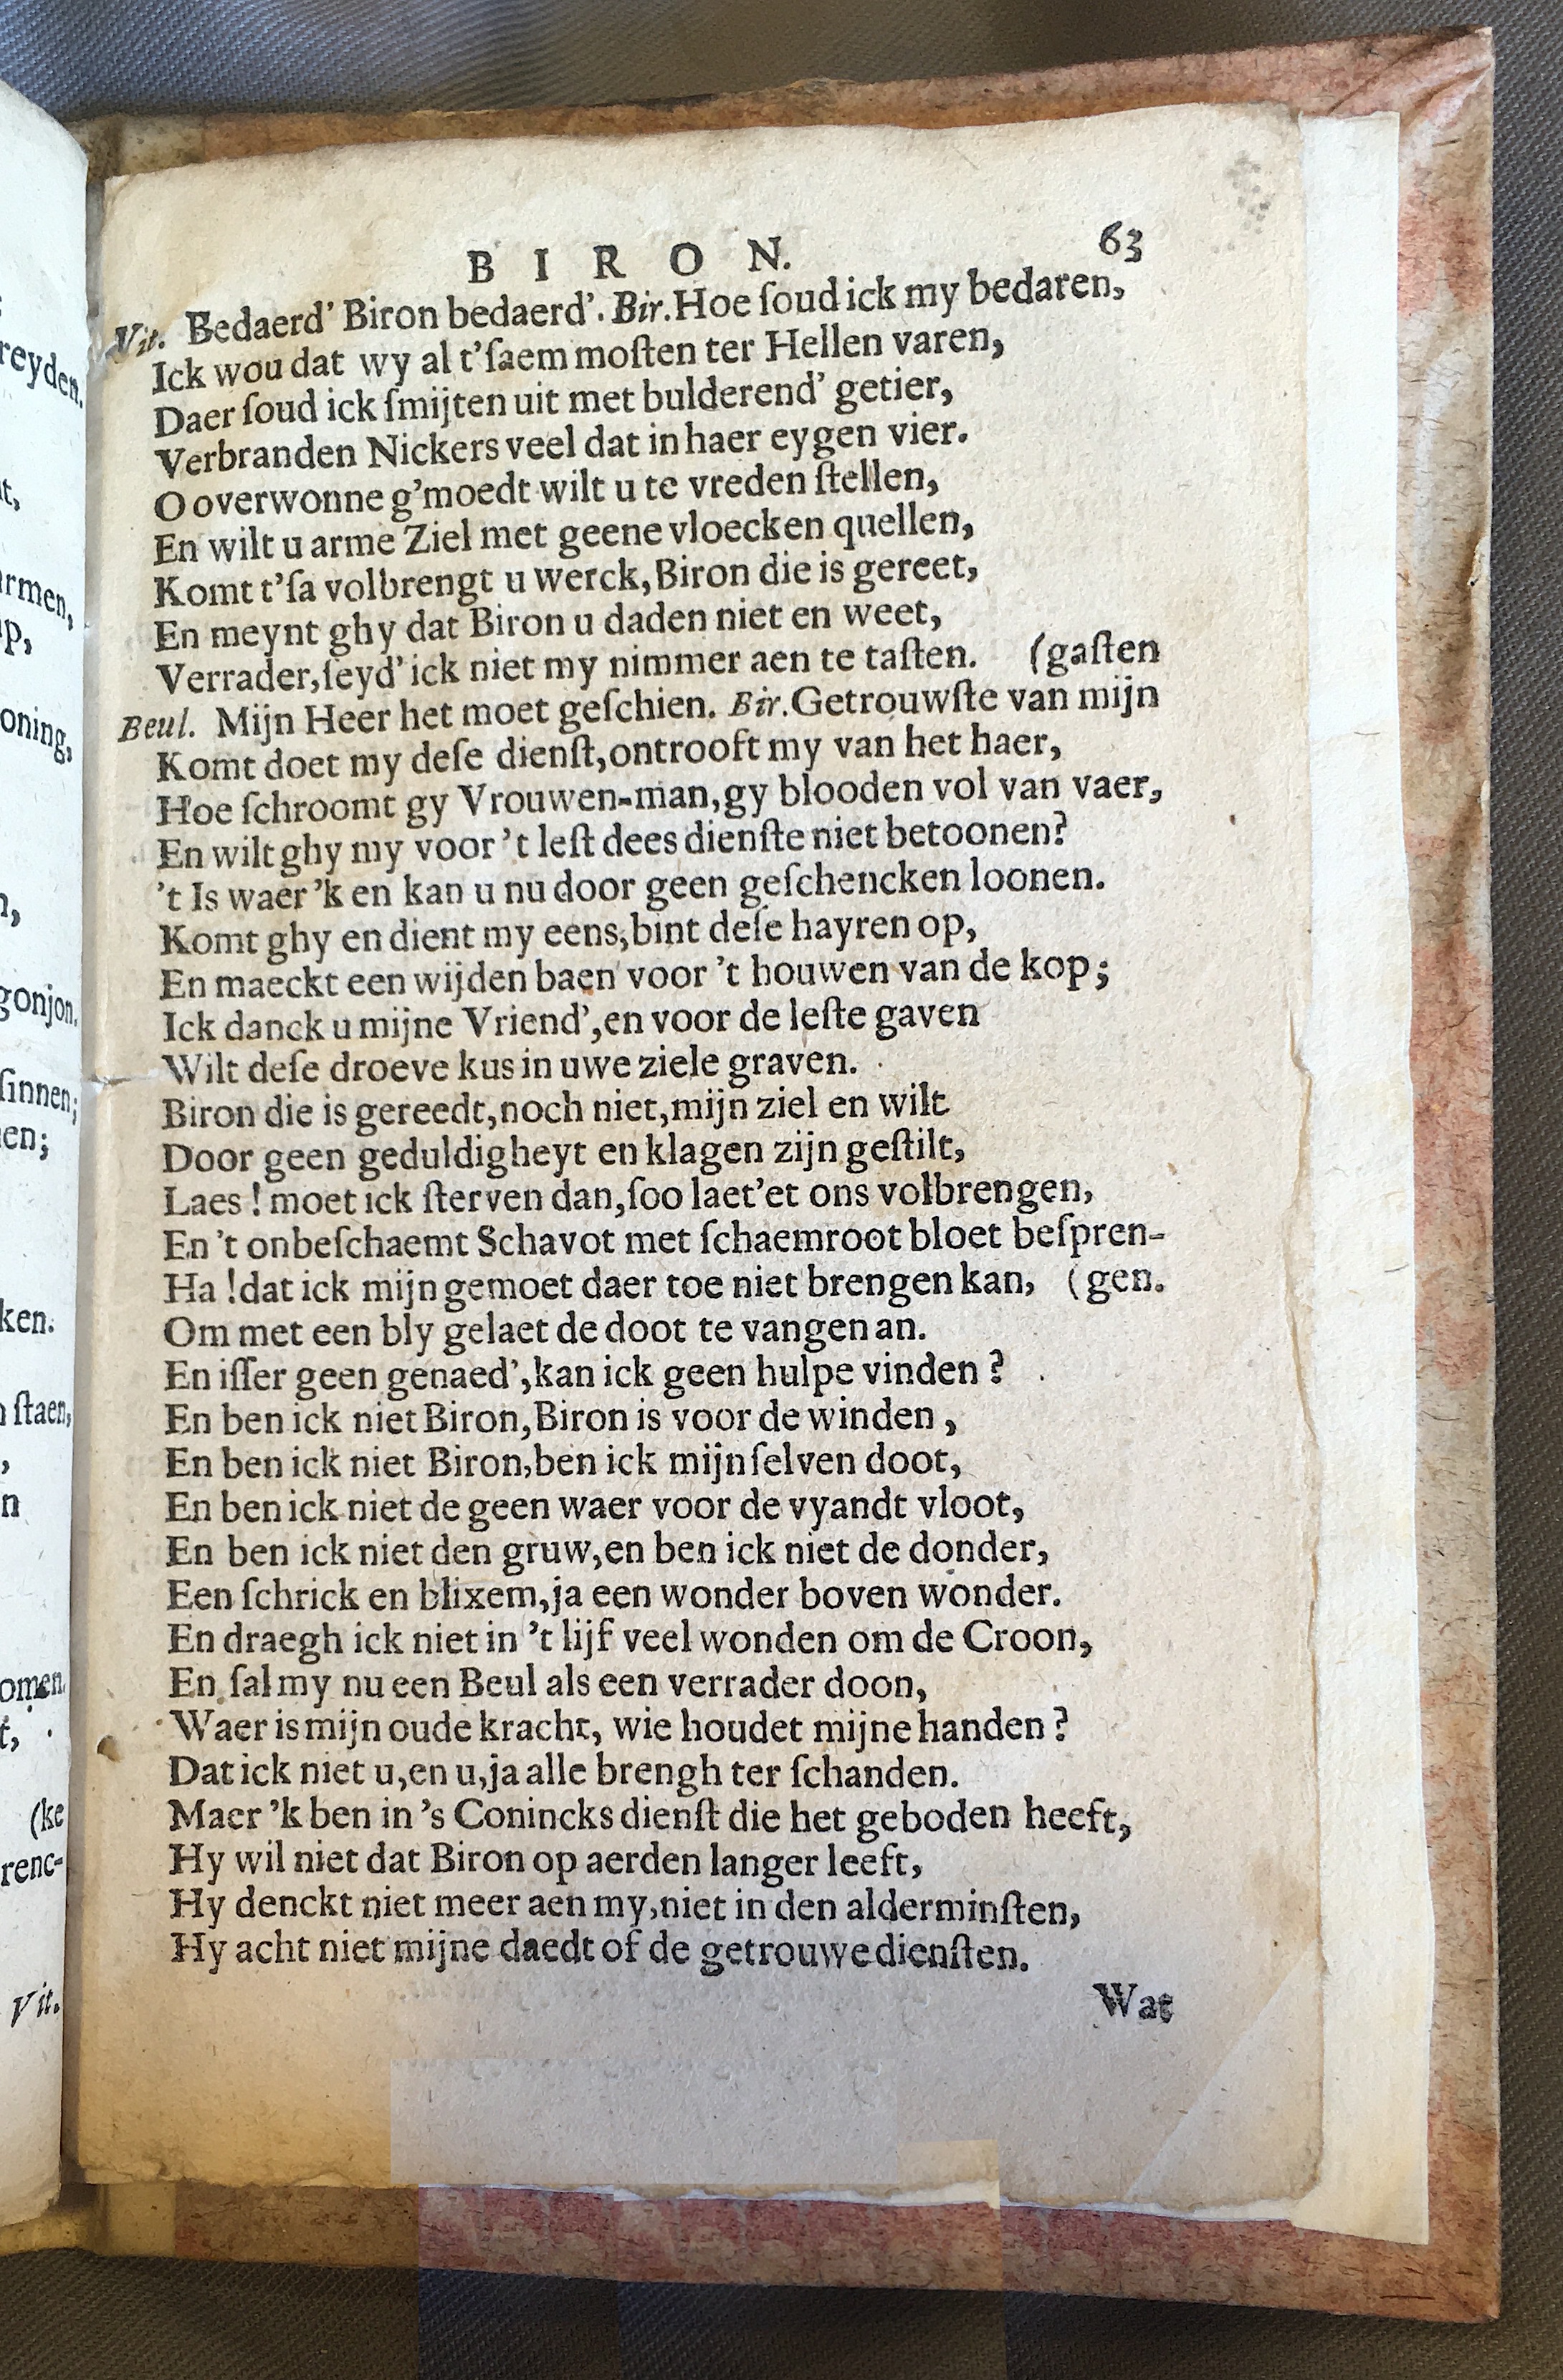 BIRON. 63
Vit. Bedaerd' Biron bedaerd'. Bir. Hoe ſoud ick my bedaren,
Ick wou dat wy al t'ſaem moſten ter Hellen varen,
Daer ſoud ick ſmijten uit met bulderend' getier,
Verbranden Nickers veel dat in haer eygen vier.
O overwonne g'moedt wilt u te vreden ſtellen,
En wilt u arme Ziel met geene vloecken quellen,
Komt t'ſa volbrengt u werck, Biron die is gereet,
En meynt ghy dat Biron u daden niet en weet,
Verrader, ſeyd' ick niet my nimmer aen te taſten. (gaſten
Beul. Mijn Heer het moet geſchien. Bir. Getrouwſte van mijn
Komt doet my deſe dienſt, ontrooft my van het haer,
Hoe ſchroomt gy Vrouwen-man, gy blooden vol van vaer,
En wilt ghy my voor 't leſt dees dienſte niet betoonen?
't Is waer 'k en kan u nu door geen geſchencken loonen.
Komt ghy en dient my eens, bint deſe hayren op,
En maeckt een wijden baen voor 't houwen van de kop;
Ick danck u mijne Vriend', en voor de leſte gaven
Wilt deſe droeve kus in uwe ziele graven.
Biron die is gereedt, noch niet, mijn ziel en wilt
Door geen geduldigheyt en klagen zijn geſtilt,
Laes! moet ick ſterven dan, ſoo laet'et ons volbrengen,
En 't onbeſchaemt Schavot met ſchaemroot bloet beſpren-
Ha! dat ick mijn gemoet daer toe niet brengen kan, (gen.
Om met een bly gelaet de doot te vangen an.
En iſſer geen genaed', kan ick geen hulpe vinden?
En ben ick niet Biron, Biron is voor de winden,
En ben ick niet Biron, ben ick mijn ſelven doot,
En ben ick niet de geen waer voor de vyandt vloot,
En ben ick niet den gruw, en ben ick niet de donder,
Een ſchrick en blixem, ja een wonder boven wonder.
En draegh ick niet in 't lijf veel wonden om de Croon,
En ſal my nu een Beul als een verrader doon,
Waer is mijn oude kracht, wie houdet mijne handen?
Dat ick niet u, en u, ja alle brengh ter ſchanden.
Maer 'k ben in 's Conincks dienſt die het geboden heeft,
Hy wil niet dat Biron op aerden langer leeft,
Hy denckt niet meer aen my, niet in den alderminſten,
Hy acht niet mijne daedt of de getrouwe dienſten.
Wat